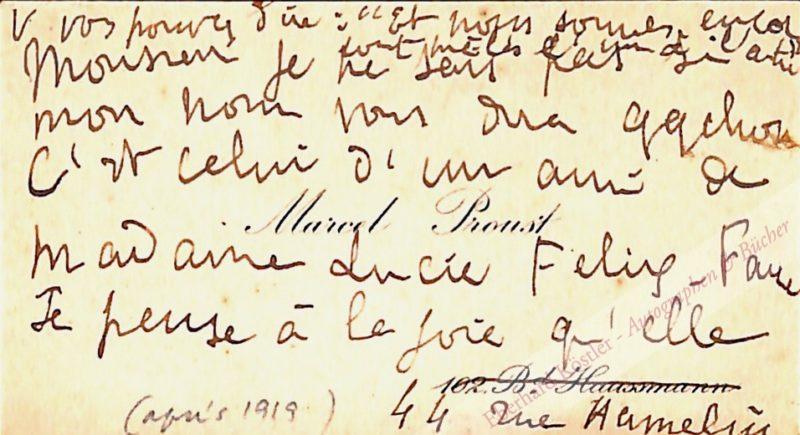 V vos pouvez dire : "Et nous sommes encor
tout mêlés l'un à l'autre
Monsieur je ne sais pas si
mon nom vous dira qqchose
C'est celui d'un ami de
Marcel Proust
Madame Lucie Felix-Faure
Je pense à la joie qu'elle
102. Bd. Haussmann
(après 1919) 44 rue Hamelin
Eberhard Köstler - Autographen & Bücher